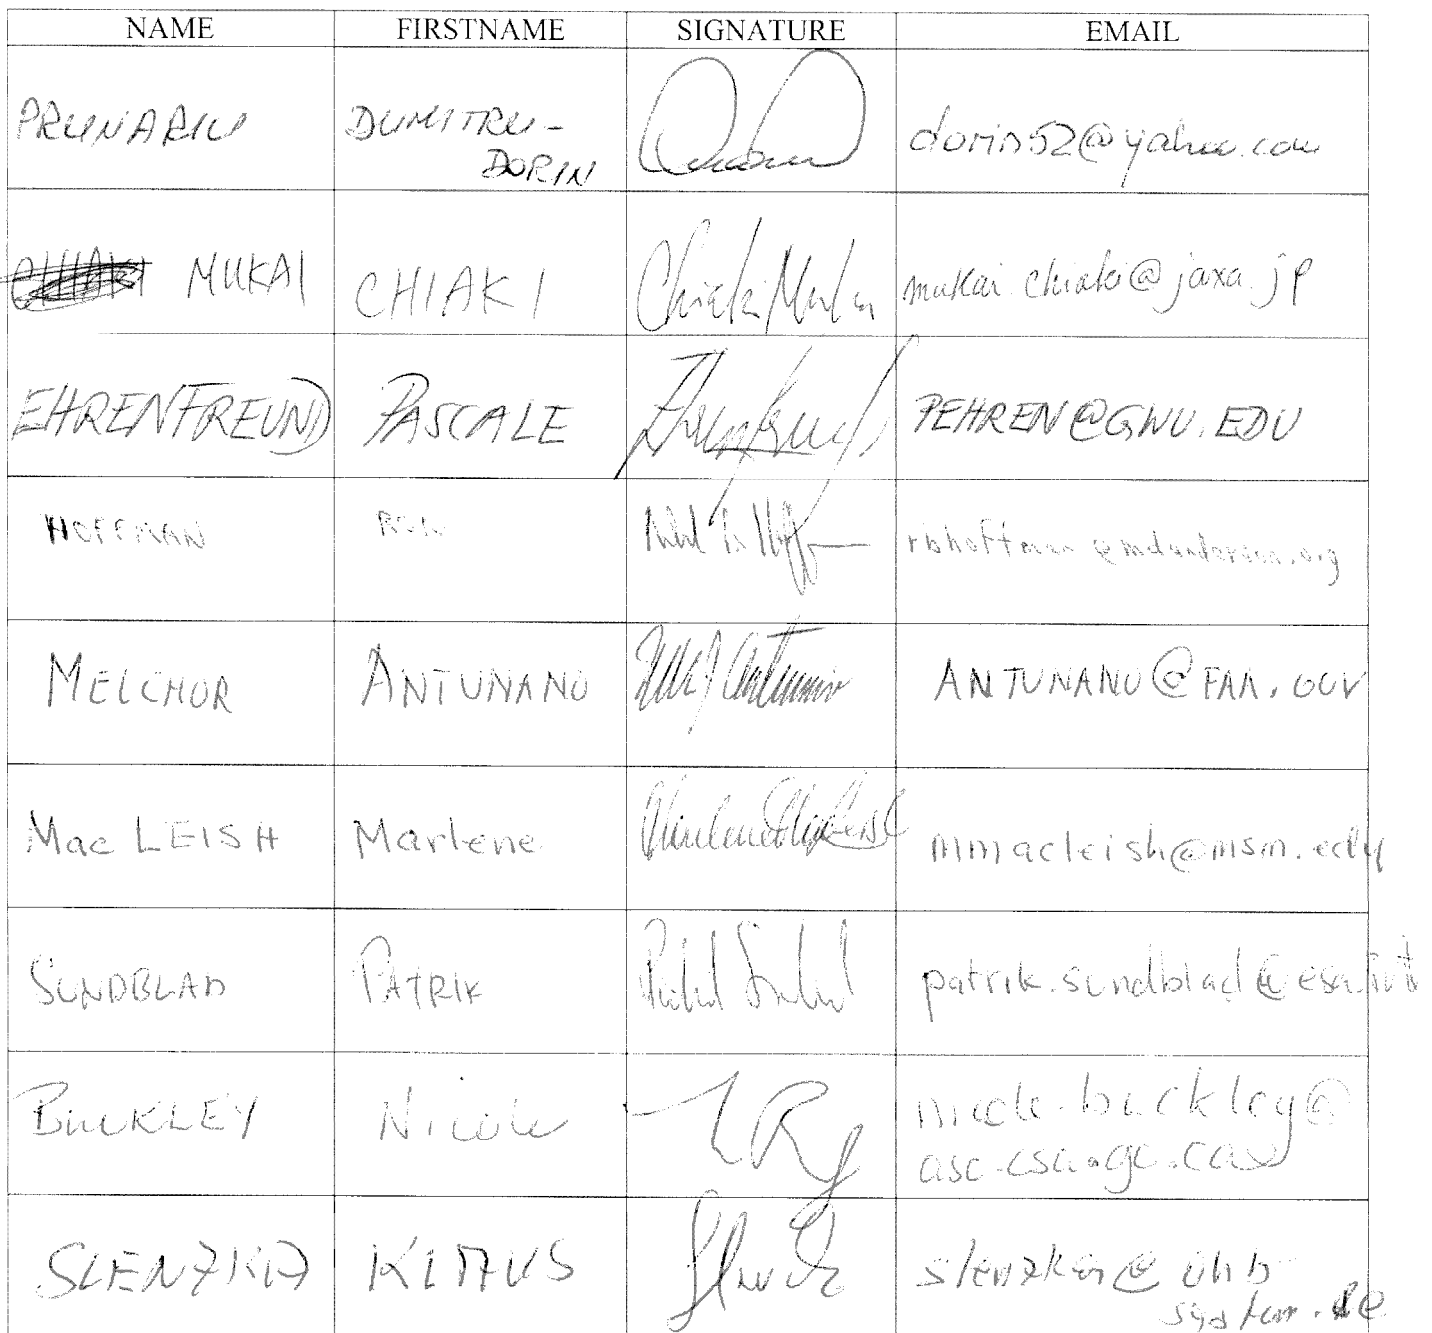 NAME FIRSTNAME SIGNATURE EMAIL
PRUNARIU DUMITRU- dorin52@yahoo.com
DORIN
CHIAKI MUKAI CHIAKI Chiaki Mukai mukai.chiaki@jaxa.jp
EHRENFREUND PASCALE PEHREN@GWU.EDU
HOFFMAN RON rbhoffman@mdanderson.org
MELCHOR ANTUNANO ANTUNANO@FAA.GOV
Mac LEISH Marlene Marlene MacLeish mmacleish@msm.edu
SUNDBLAD PATRIK patrik.sundblad@esa.int
BUCKLEY Nicole nicole.buckley@
asc-csa.gc.ca
SLENZKA KLAUS slenzka@ohb-
system.de